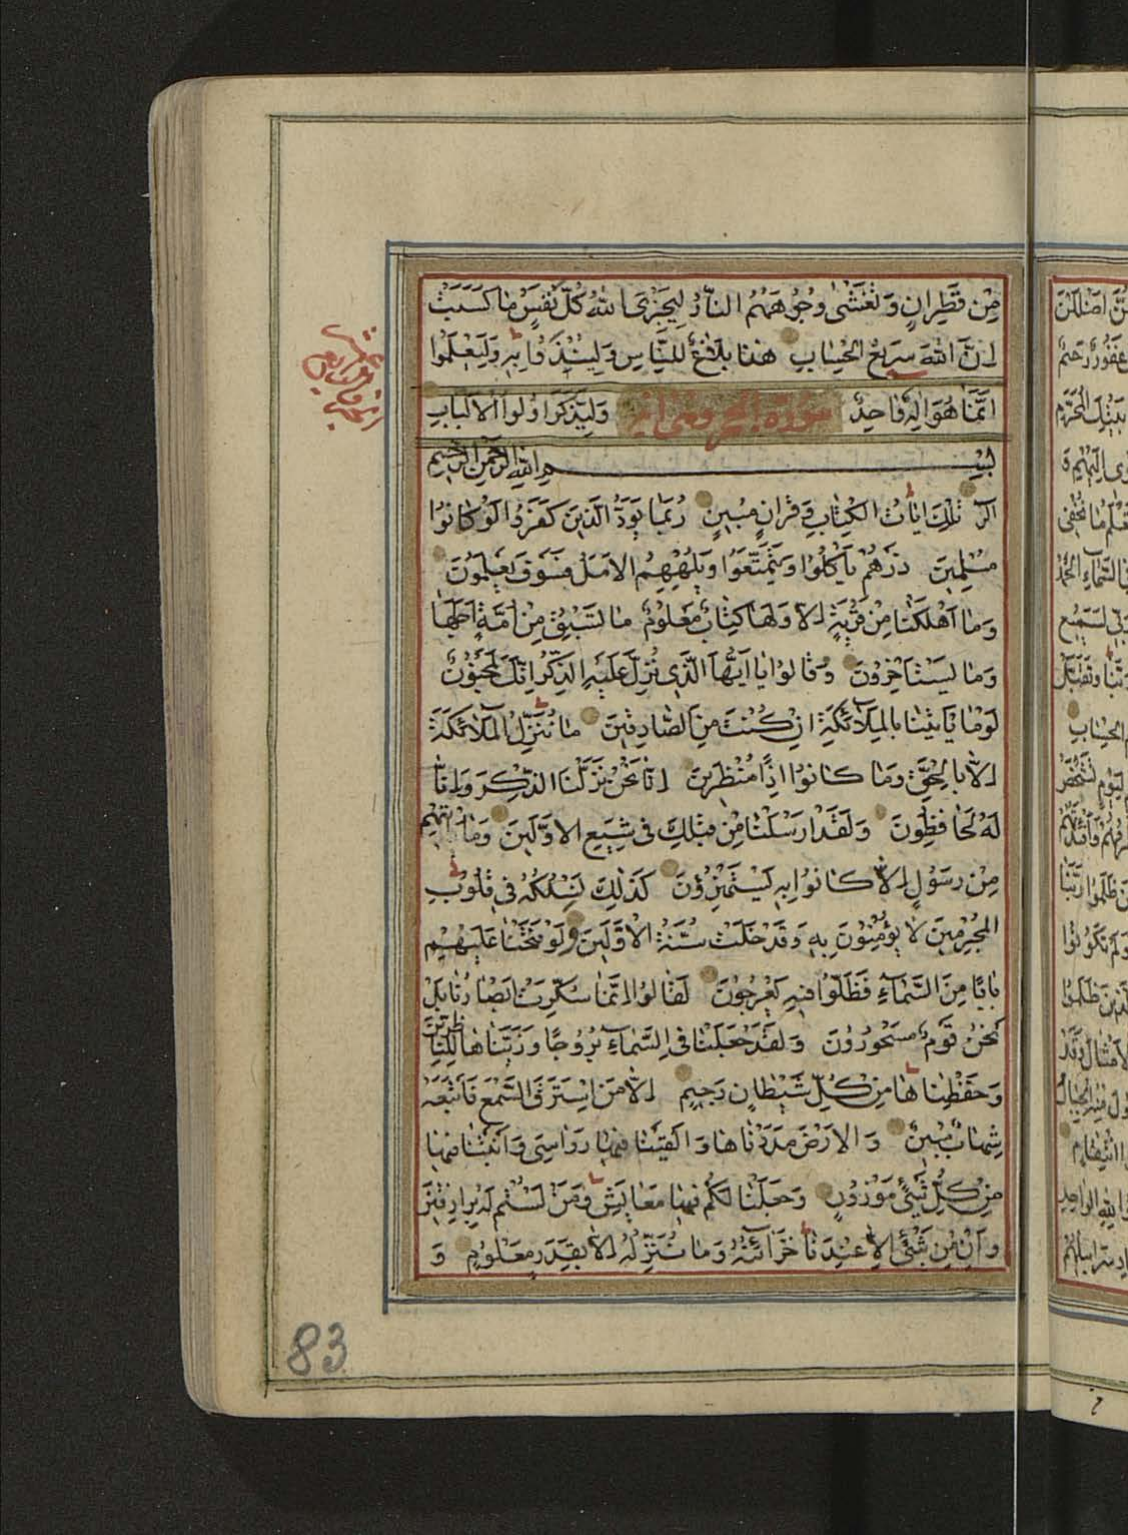 مِنْ قَطِرانٍ وَتَغْشىٰ وُجُوهَهُمُ النّارُ لِيَجْزِىَ اللّٰهُ كُلَّ نَفْسٍ مٰا كَسَبَتْ
اِنَّ اللّٰهَ سَرِيعُ الْحِسٰابِ هٰذٰا بَلٰاغٌ لِلنّٰاسِ وَلِيُنْذَرُوا بِهِ وَلِيَعْلَمُوا
اَنَّمٰا هُوَ اِلٰهٌ وٰاحِدٌ سورة الحجر وَلِيَذَّكَّرَ اُولُوا الْاَلْبابِ
بِسْمِ اللّٰهِ الرَّحْمٰنِ الرَّحِيمِ
الٓرٰ تِلْكَ اٰيٰاتُ الْكِتٰابِ وَقُرْاٰنٍ مُبِينٍ رُبَمٰا يَوَدُّ الَّذِينَ كَفَرُوا لَوْ كٰانُوا
مُسْلِمِينَ ذَرْهُمْ يَأْكُلُوا وَيَتَمَتَّعُوا وَيُلْهِهِمُ الْاَمَلُ فَسَوْفَ يَعْلَمُونَ
وَمٰا اَهْلَكْنٰا مِنْ قَرْيَةٍ اِلّٰا وَلَهٰا كِتٰابٌ مَعْلُومٌ مٰا تَسْبِقُ مِنْ اُمَّةٍ اَجَلَهٰا
وَمٰا يَسْتَأْخِرُونَ وَقٰالُوا يٰا اَيُّهَا الَّذِي نُزِّلَ عَلَيْهِ الذِّكْرُ اِنَّكَ لَمَجْنُونٌ
لَوْمٰا تَأْتِينٰا بِالْمَلٰٓائِكَةِ اِنْ كُنْتَ مِنَ الصّٰادِقِينَ مٰا نُنَزِّلُ الْمَلٰٓائِكَةَ
اِلّٰا بِالْحَقِّ وَمٰا كٰانُوا اِذًا مُنْظَرِينَ اِنّٰا نَحْنُ نَزَّلْنَا الذِّكْرَ وَاِنّٰا
لَهُ لَحٰافِظُونَ وَلَقَدْ اَرْسَلْنٰا مِنْ قَبْلِكَ فِي شِيَعِ الْاَوَّلِينَ وَمٰا يَأْتِيهِمْ
مِنْ رَسُولٍ اِلّٰا كٰانُوا بِهِ يَسْتَهْزِؤُنَ كَذٰلِكَ نَسْلُكُهُ فِي قُلُوبِ
الْمُجْرِمِينَ لٰا يُؤْمِنُونَ بِهِ وَقَدْ خَلَتْ سُنَّةُ الْاَوَّلِينَ وَلَوْ فَتَحْنٰا عَلَيْهِمْ
بٰابًا مِنَ السَّمٰٓاءِ فَظَلُّوا فِيهِ يَعْرُجُونَ لَقٰالُوا اِنَّمٰا سُكِّرَتْ اَبْصٰارُنٰا بَلْ
نَحْنُ قَوْمٌ مَسْحُورُونَ وَلَقَدْ جَعَلْنٰا فِي السَّمٰٓاءِ بُرُوجًا وَزَيَّنّٰاهٰا لِلنّٰاظِرِينَ
وَحَفِظْنٰاهٰا مِنْ كُلِّ شَيْطٰانٍ رَجِيمٍ اِلّٰا مَنِ اسْتَرَقَ السَّمْعَ فَاَتْبَعَهُ
شِهٰابٌ مُبِينٌ وَالْاَرْضَ مَدَدْنٰاهٰا وَاَلْقَيْنٰا فِيهٰا رَوٰاسِيَ وَاَنْبَتْنٰا فِيهٰا
مِنْ كُلِّ شَيْءٍ مَوْزُونٍ وَجَعَلْنٰا لَكُمْ فِيهٰا مَعٰايِشَ وَمَنْ لَسْتُمْ لَهُ بِرٰازِقِينَ
وَاِنْ مِنْ شَيْءٍ اِلّٰا عِنْدَنٰا خَزٰٓائِنُهُ وَمٰا نُنَزِّلُهُ اِلّٰا بِقَدَرٍ مَعْلُومٍ وَ
83